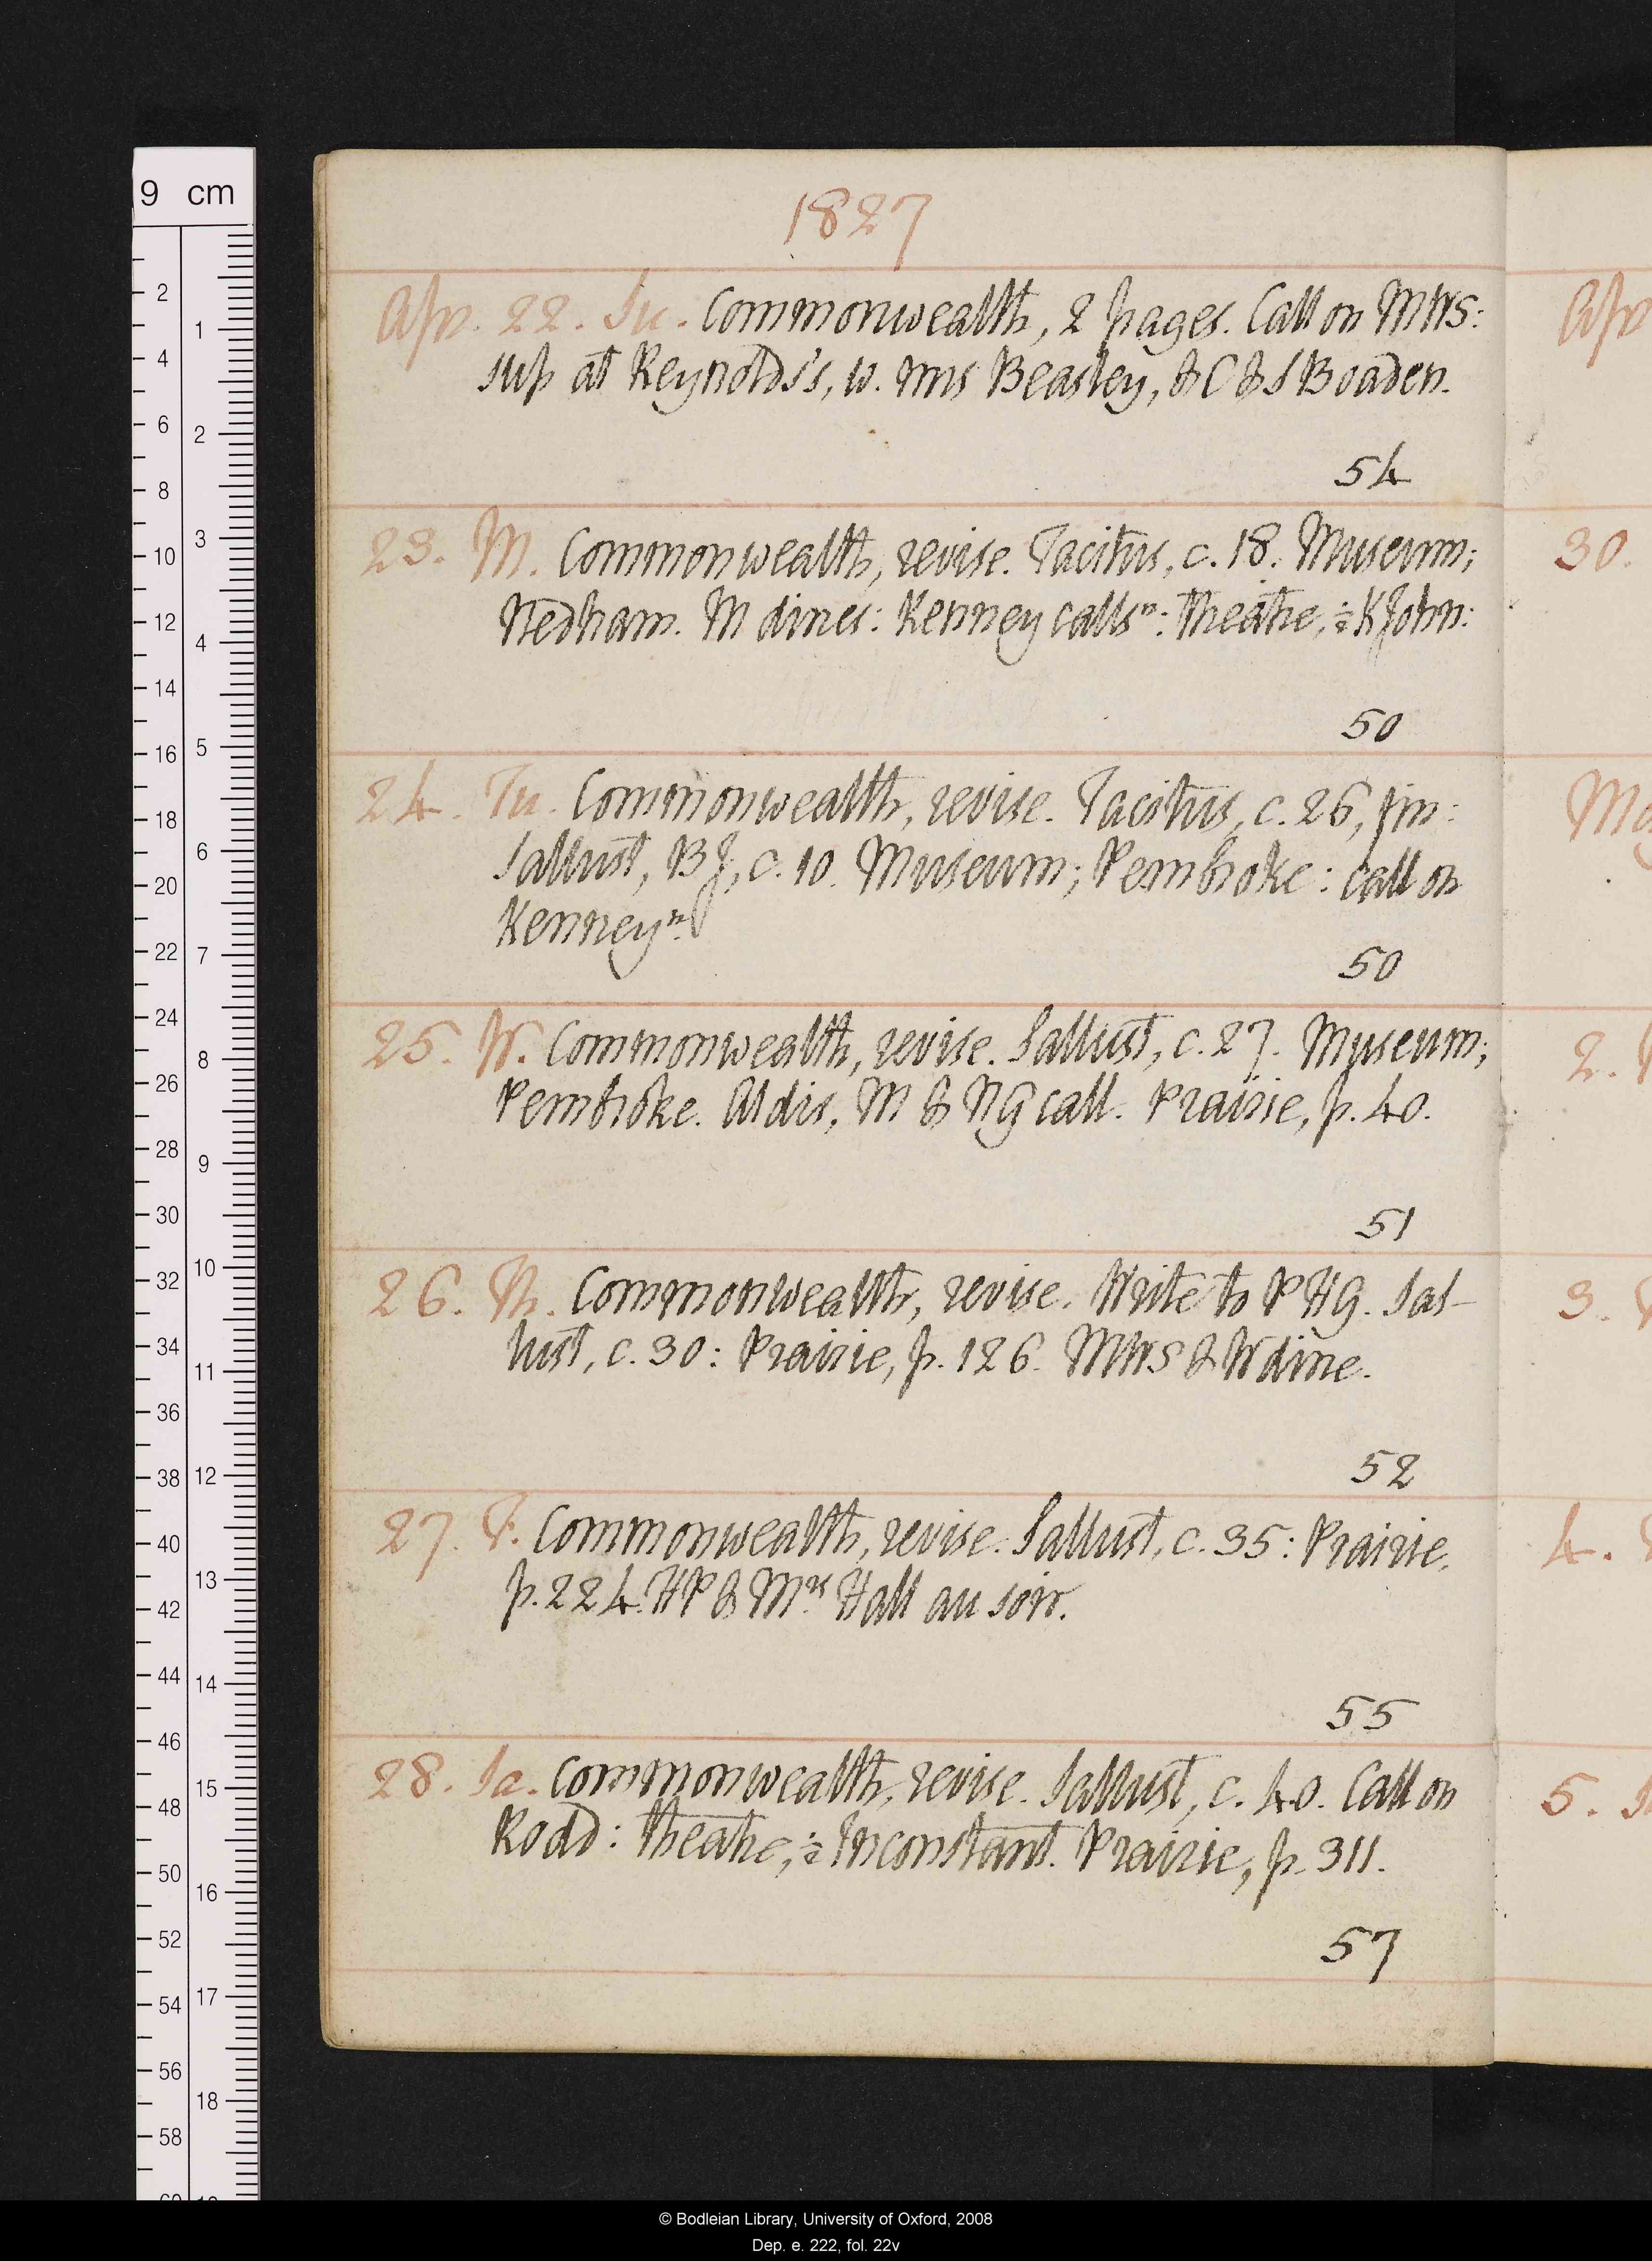 9 cm
1827
Apr. 22. Su. Commonwealth, 2 pages. Call on MWS:
sup at Reynolds's, w. mrs Beasley, & C & J Boaden.
54
23. M. Commonwealth, revise. Tacitus, c. 18. Museum;
Nedham. M dines: Kenney callsⁿ: Theatre, K John:
50
24. Tu. Commonwealth, revise. Tacitus, c. 26, fin:
Sallust, BJ, c. 10. Museum; Pembroke: call on
Kenneyⁿ.
50
25. W. Commonwealth, revise. Sallust, c. 27. Museum;
Pembroke. Aldis, M & NG call. Prairie, p. 40.
51
26. Th. Commonwealth, revise. Write to PHG. Sal-
lust, c. 30: Prairie, p. 126. MWS & W dine.
52
27. F. Commonwealth, revise. Sallust, c. 35: Prairie,
p. 224. HP & Mrs Hall au soir.
55
28. Sa. Commonwealth, revise. Sallust, c. 40. Call on
Rodd: Theatre, Inconstant. Prairie, p. 311.
57
Apr
30.
2.
3.
4.
5.
© Bodleian Library, University of Oxford, 2008
Dep. e. 222, fol. 22v